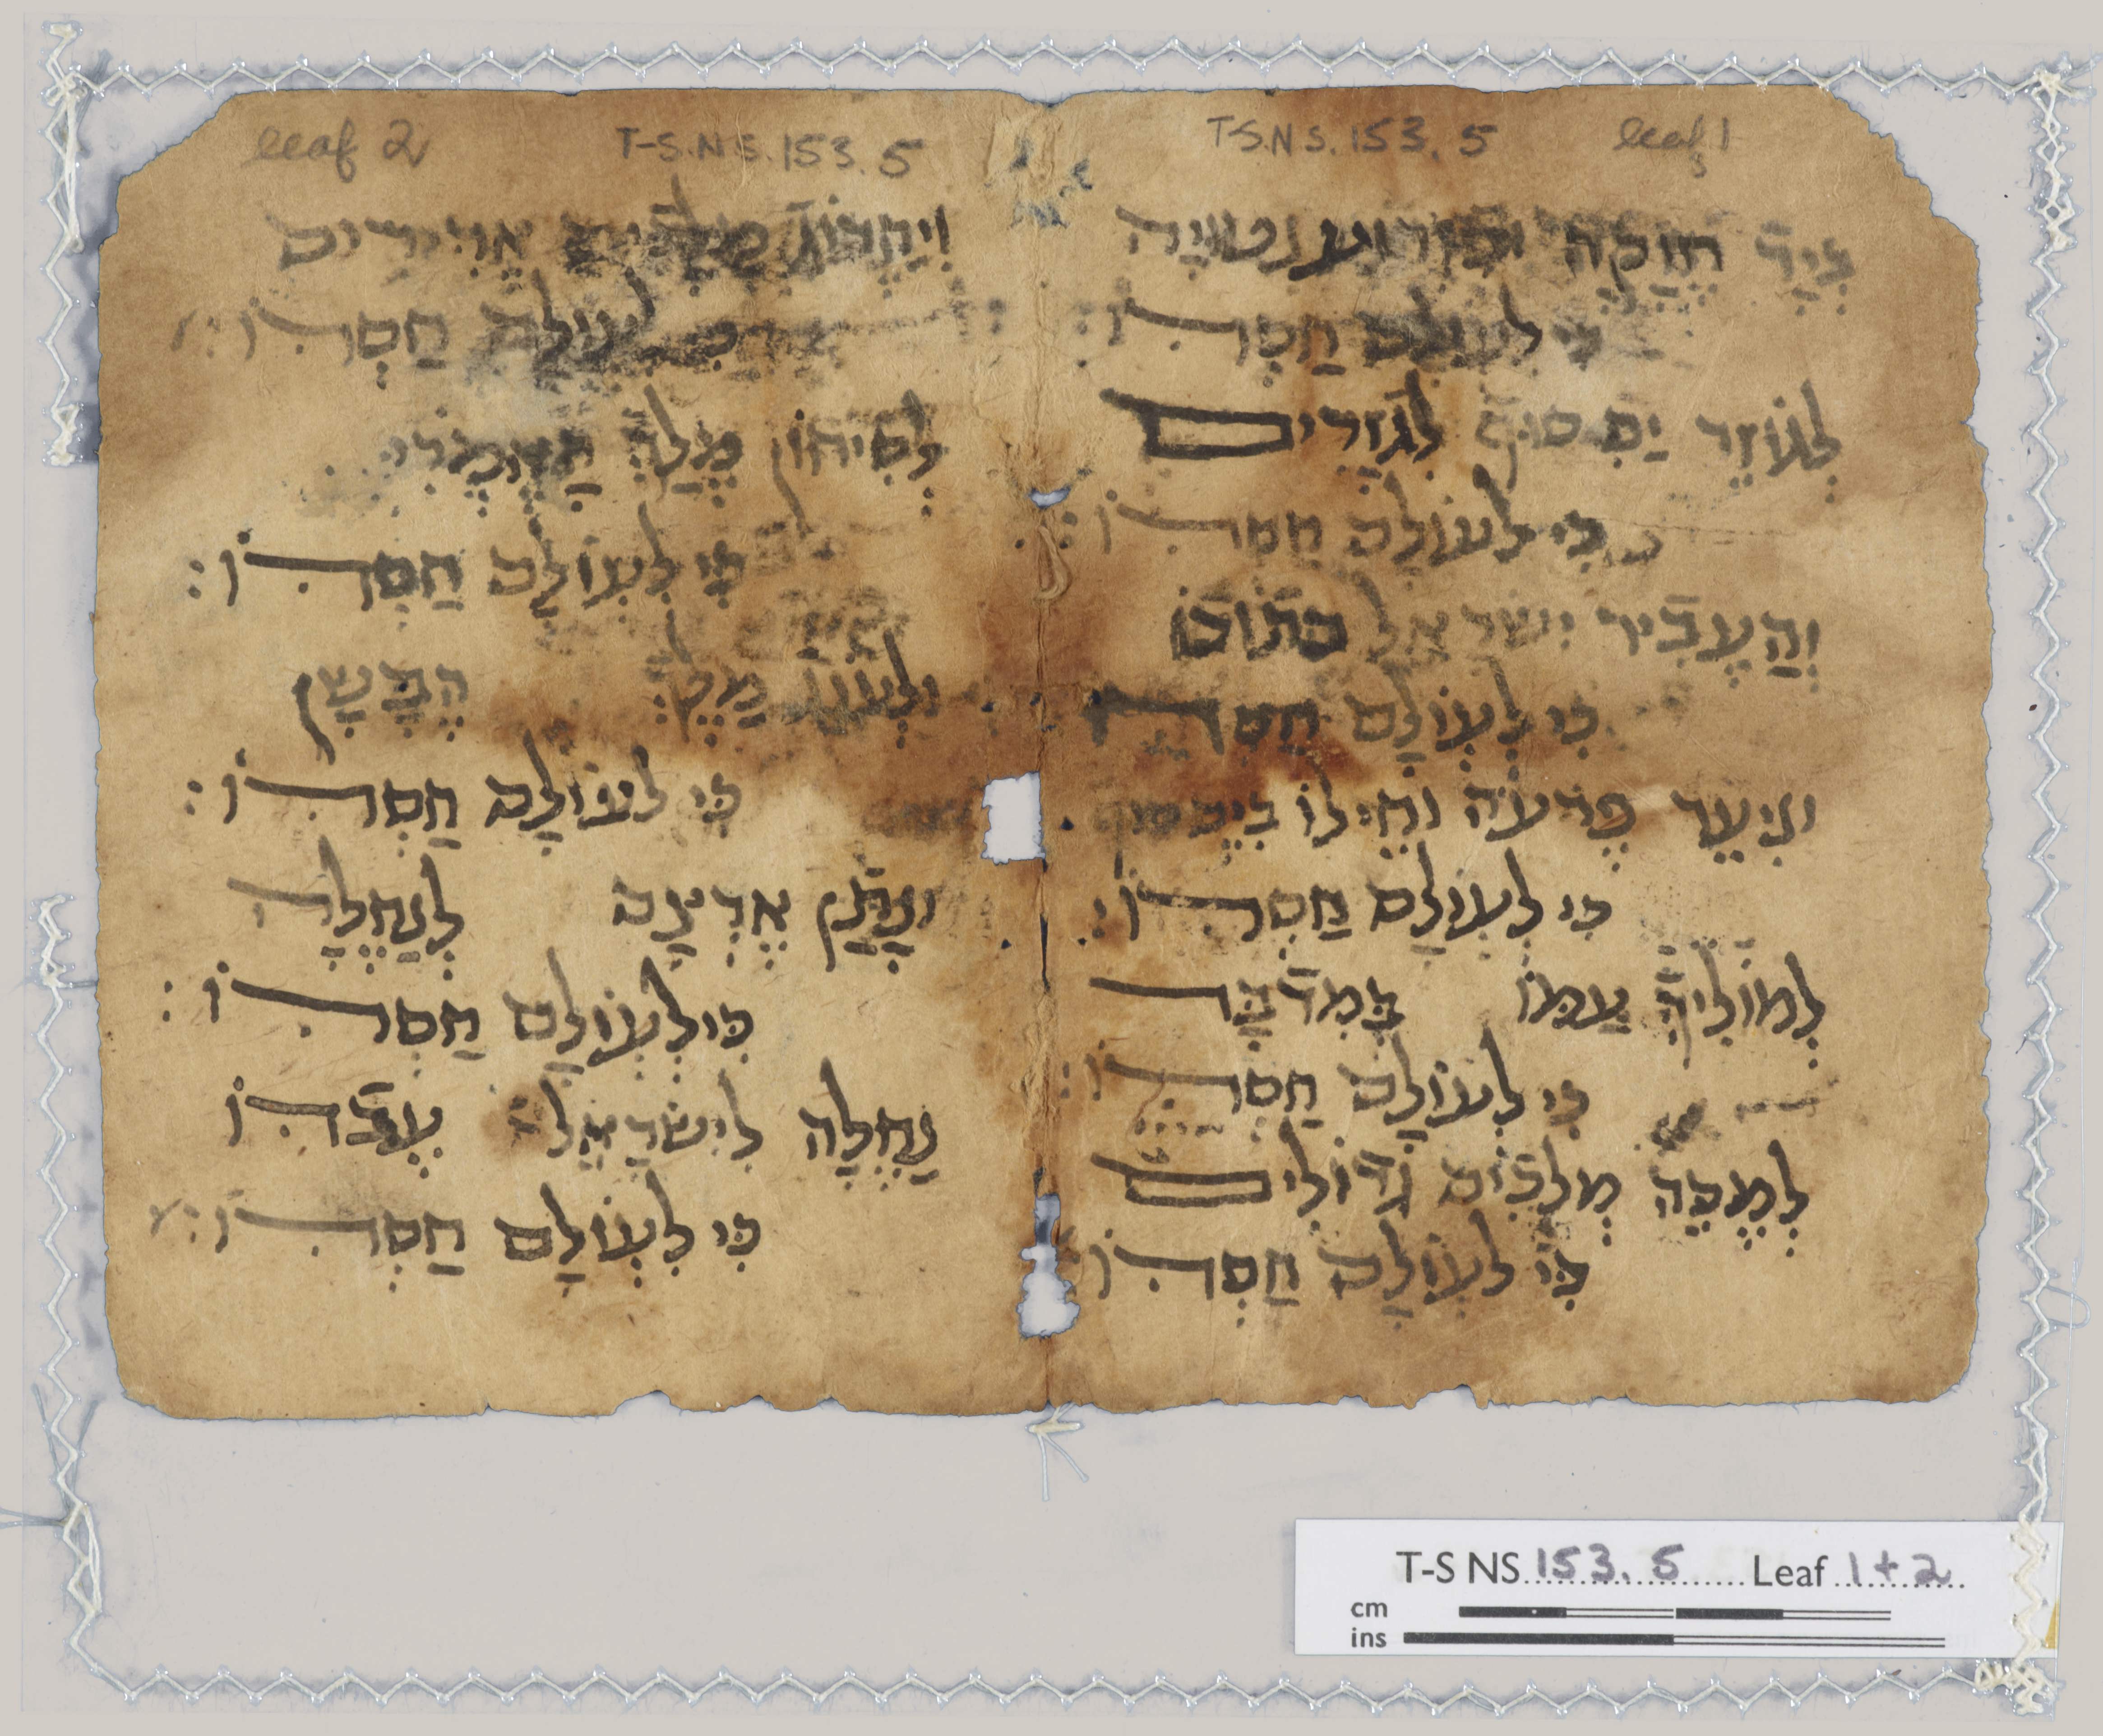 leaf 1
T-S.N S. 153. 5
בְּיָד חֲזָקָה וּבִזְרוֹעַ נְטוּיָה
כִּי לְעוֹלָם חַסְדּוֹ:
לְגוֹזֵר יַם סוּף לִגְזָרִים
כִּי לְעוֹלָם חַסְדּוֹ:
וְהֶעֱבִיר יִשְׂרָאֵל בְּתוֹכוֹ
כִּי לְעוֹלָם חַסְדּוֹ
וְנִיעֵר פַרְעֹה וְחֵילוֹ בְיַם סוּף
כִּי לְעוֹלָם חַסְדּוֹ:
לְמוֹלִיךְ עַמּוֹ בַּמִּדְבָּר
כִּי לְעוֹלָם חַסְדּוֹ:
לְמַכֵּה מְלָכִים גְּדוֹלִים
כִּי לְעוֹלָם חַסְדּוֹ
leaf 2
T-S.N S. 153. 5
וַיַּהֲרוֹג מְלָכִים אַדִּירִים
כִּי לְעוֹלָם חַסְדּוֹ:
לְסִיחוֹן מֶלֶךְ הָאֱמֹרִי
כִּי לְעוֹלָם חַסְדּוֹ:
וּלְעוֹג מֶלֶךְ הַבָּשָׁן
כִּי לְעוֹלָם חַסְדּוֹ:
וְנָתַן אַרְצָם לְנַחֲלָה
כִּי לְעוֹלָם חַסְדּוֹ:
נַחֲלָה לְיִשְׂרָאֵל עַבְדּוֹ
כִּי לְעוֹלָם חַסְדּוֹ:
T-S NS 153. 5 Leaf 1+2
cm
ins